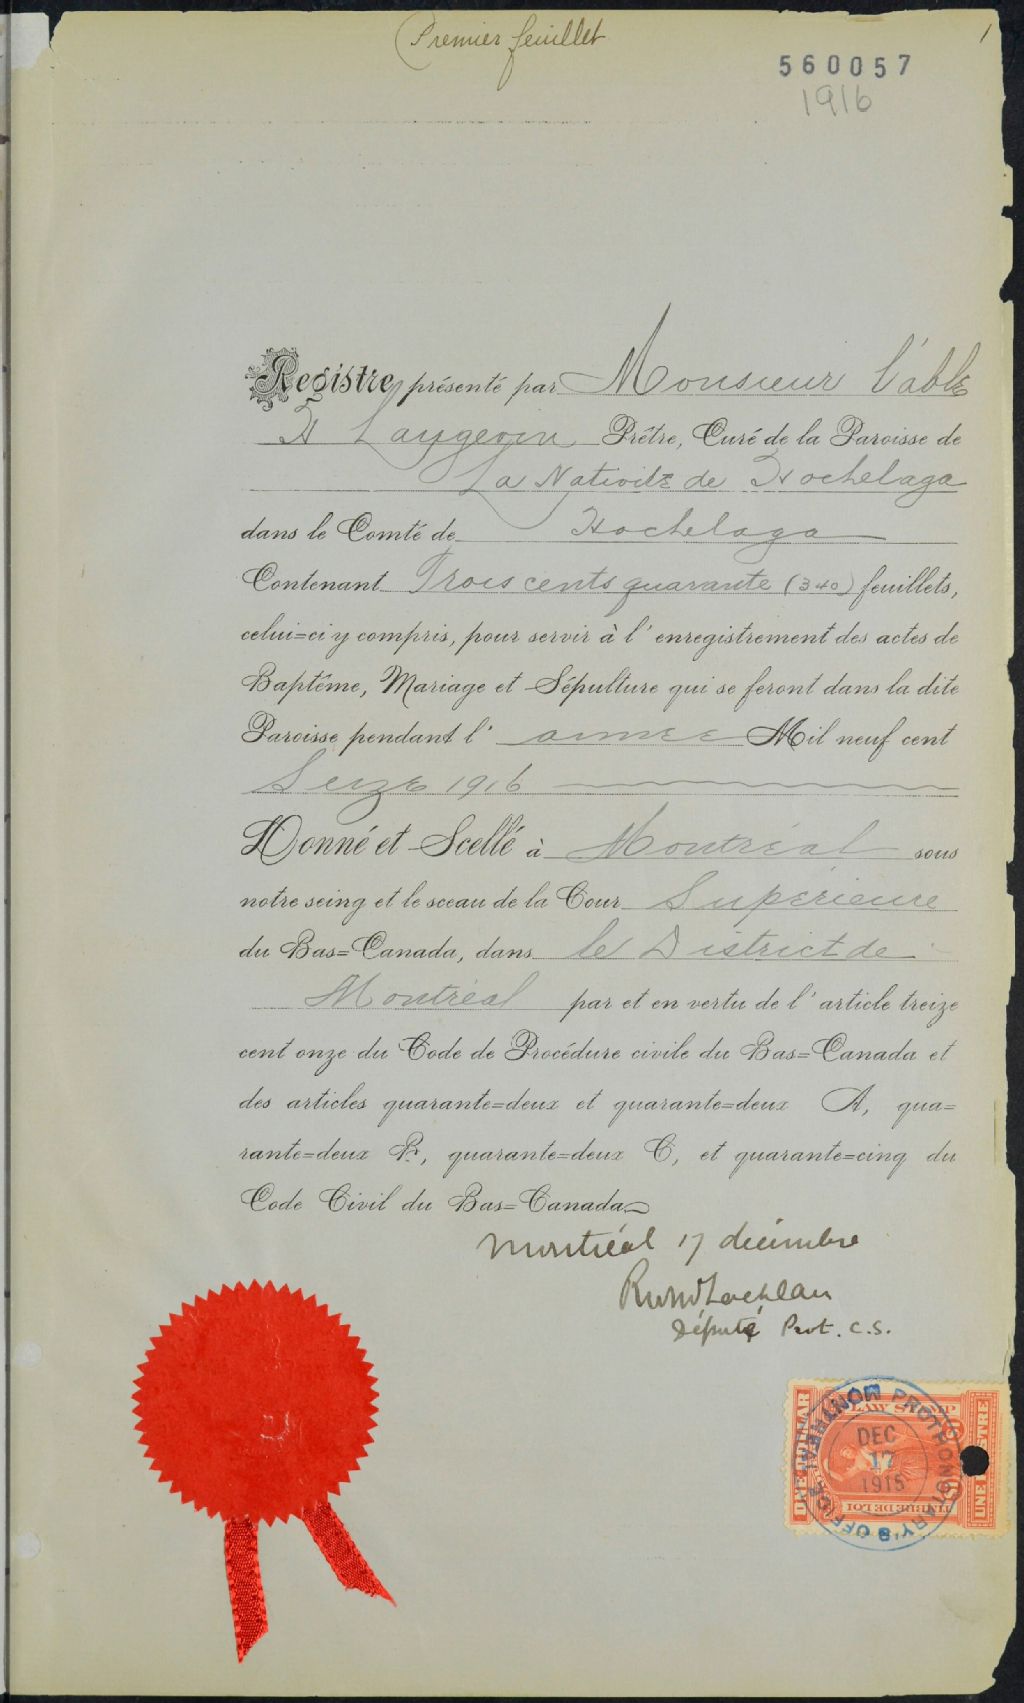 Premier feuillet
1
560057
1916
Registre présenté par Monsieur l'abbé
H Langevin Prêtre, Curé de la Paroisse de
La Nativité de Hochelaga
dans le Comté de Hochelaga
Contenant Trois cents quarante (340) feuillets,
celui=ci y compris, pour servir à l'enregistrement des actes de
Baptême, Mariage et Sépulture qui se feront dans la dite
Paroisse pendant l'année Mil neuf cent
Seize 1916
Donné et Scellé à Montréal sous
notre seing et le sceau de la Cour Supérieure
du Bas=Canada, dans le District de
Montréal par et en vertu de l'article treize
cent onze du Code de Procédure civile du Bas=Canada et
des articles quarante=deux et quarante=deux A, qua=
rante=deux B, quarante=deux C, et quarante=cinq du
Code Civil du Bas=Canada
Montréal 17 décembre
Député Prot. C.S.
ONE DOLLAR
LAW STAMP
TIMBRE DE LOI
UNE PIASTRE
MONTREAL PROTHONOTARY'S OFFICE
DEC
17
1915